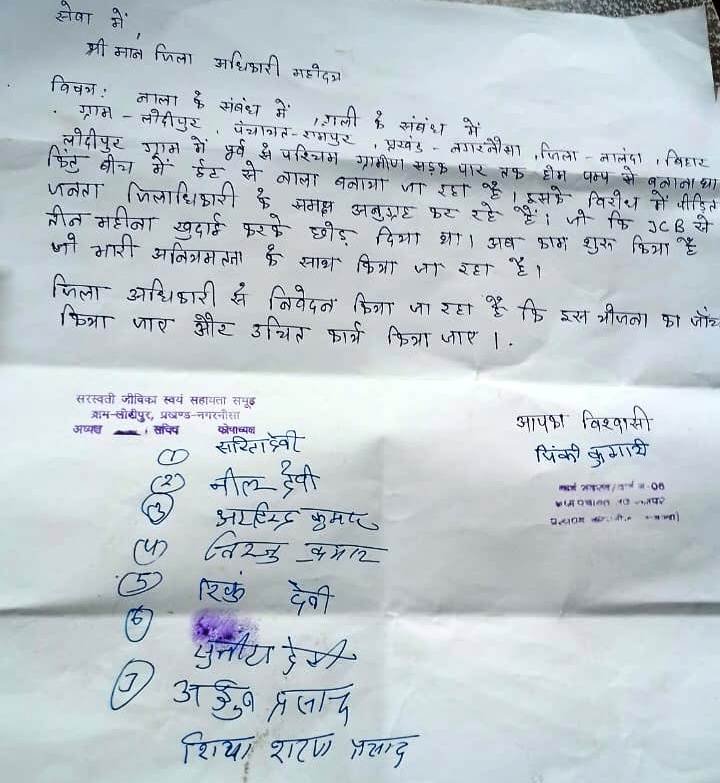 सेवा में,
श्री मान जिला अधिकारी महोदय
विषय: नाला के संबंध में, गली के संबंध में
ग्राम - लोदीपुर, पंचायत - रामपुर, प्रखंड - नगरनौसा, जिला - नालंदा, बिहार
लोदीपुर ग्राम में पूर्व से पश्चिम ग्रामीण सड़क पार तक होम पम्प से बनाना था
किंतु बीच में ईंट से नाला बनाया जा रहा है। इसके विरोध में पीड़ित
जनता जिलाधिकारी के समक्ष अनुग्रह कर रहे हैं। जो कि JCB से
तीन महीना खुदाई करके छोड़ दिया था। अब काम शुरू किया है
जो भारी अनियमतता के साथ किया जा रहा है।
जिला अधिकारी से निवेदन किया जा रहा है कि इस योजना का जाँच
किया जाए और उचित कार्य किया जाए।
सरस्वती जीविका स्वयं सहायता समूह
ग्राम-लोदीपुर, प्रखण्ड-नगरनौसा
अध्यक्ष सचिव कोषाध्यक्ष
आपका विश्वासी
पिंकी कुमारी
(1) सरिता देवी
(2) नीलम देवी
(3) कुमार
(4) कुमार
(5) रिंकु देवी
(6)
सुनीता देवी
(7) अर्जुन प्रसाद
शिया शरण प्रसाद